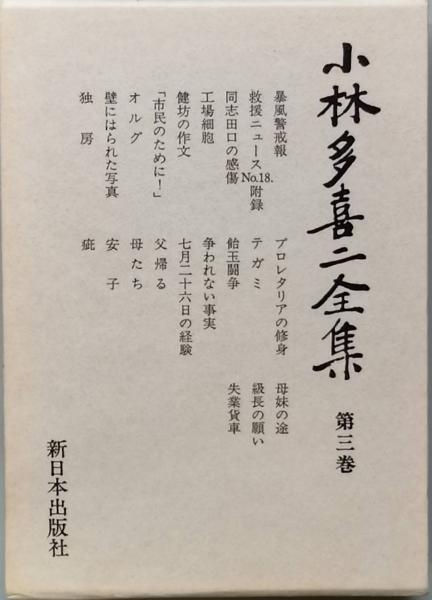 小林多喜二全集
第三巻
暴風警戒報
救援ニュースNo.18.附録
同志田口の感傷
工場細胞
健坊の作文
「市民のために！」
オルグ
壁にはられた写真
独房
プロレタリアの修身
テガミ
飴玉闘争
争われない事実
七月二十六日の経験
父帰る
母たち
安子
疵
母妹の途
級長の願い
失業貨車
新日本出版社